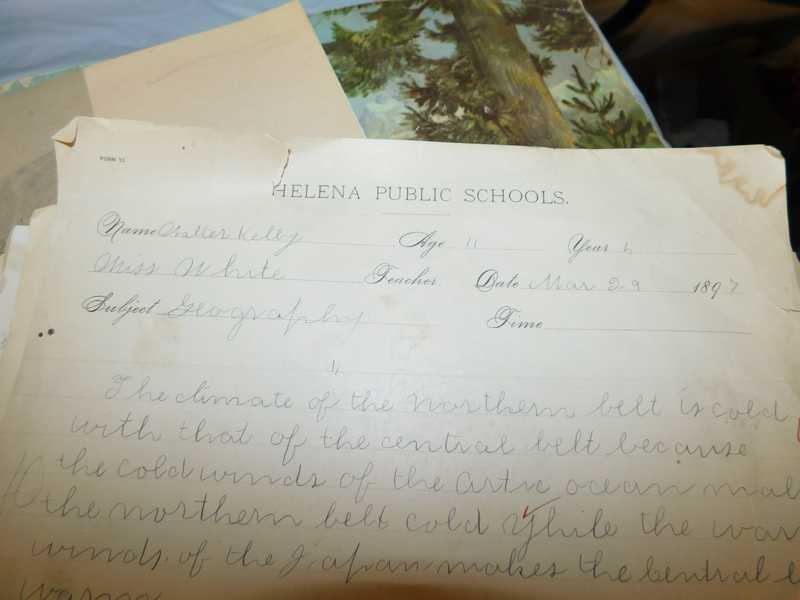 FORM 12
HELENA PUBLIC SCHOOLS.
Name Walter Kelly Age 11 Year 6
Miss White Teacher. Date Mar 29 1897
Subject Geography Time
1)
The climate of the northern belt is cold
with that of the central belt because
the cold winds of the Artic ocean
10 the northern belt cold While the
winds of the Japan makes the Central
warm